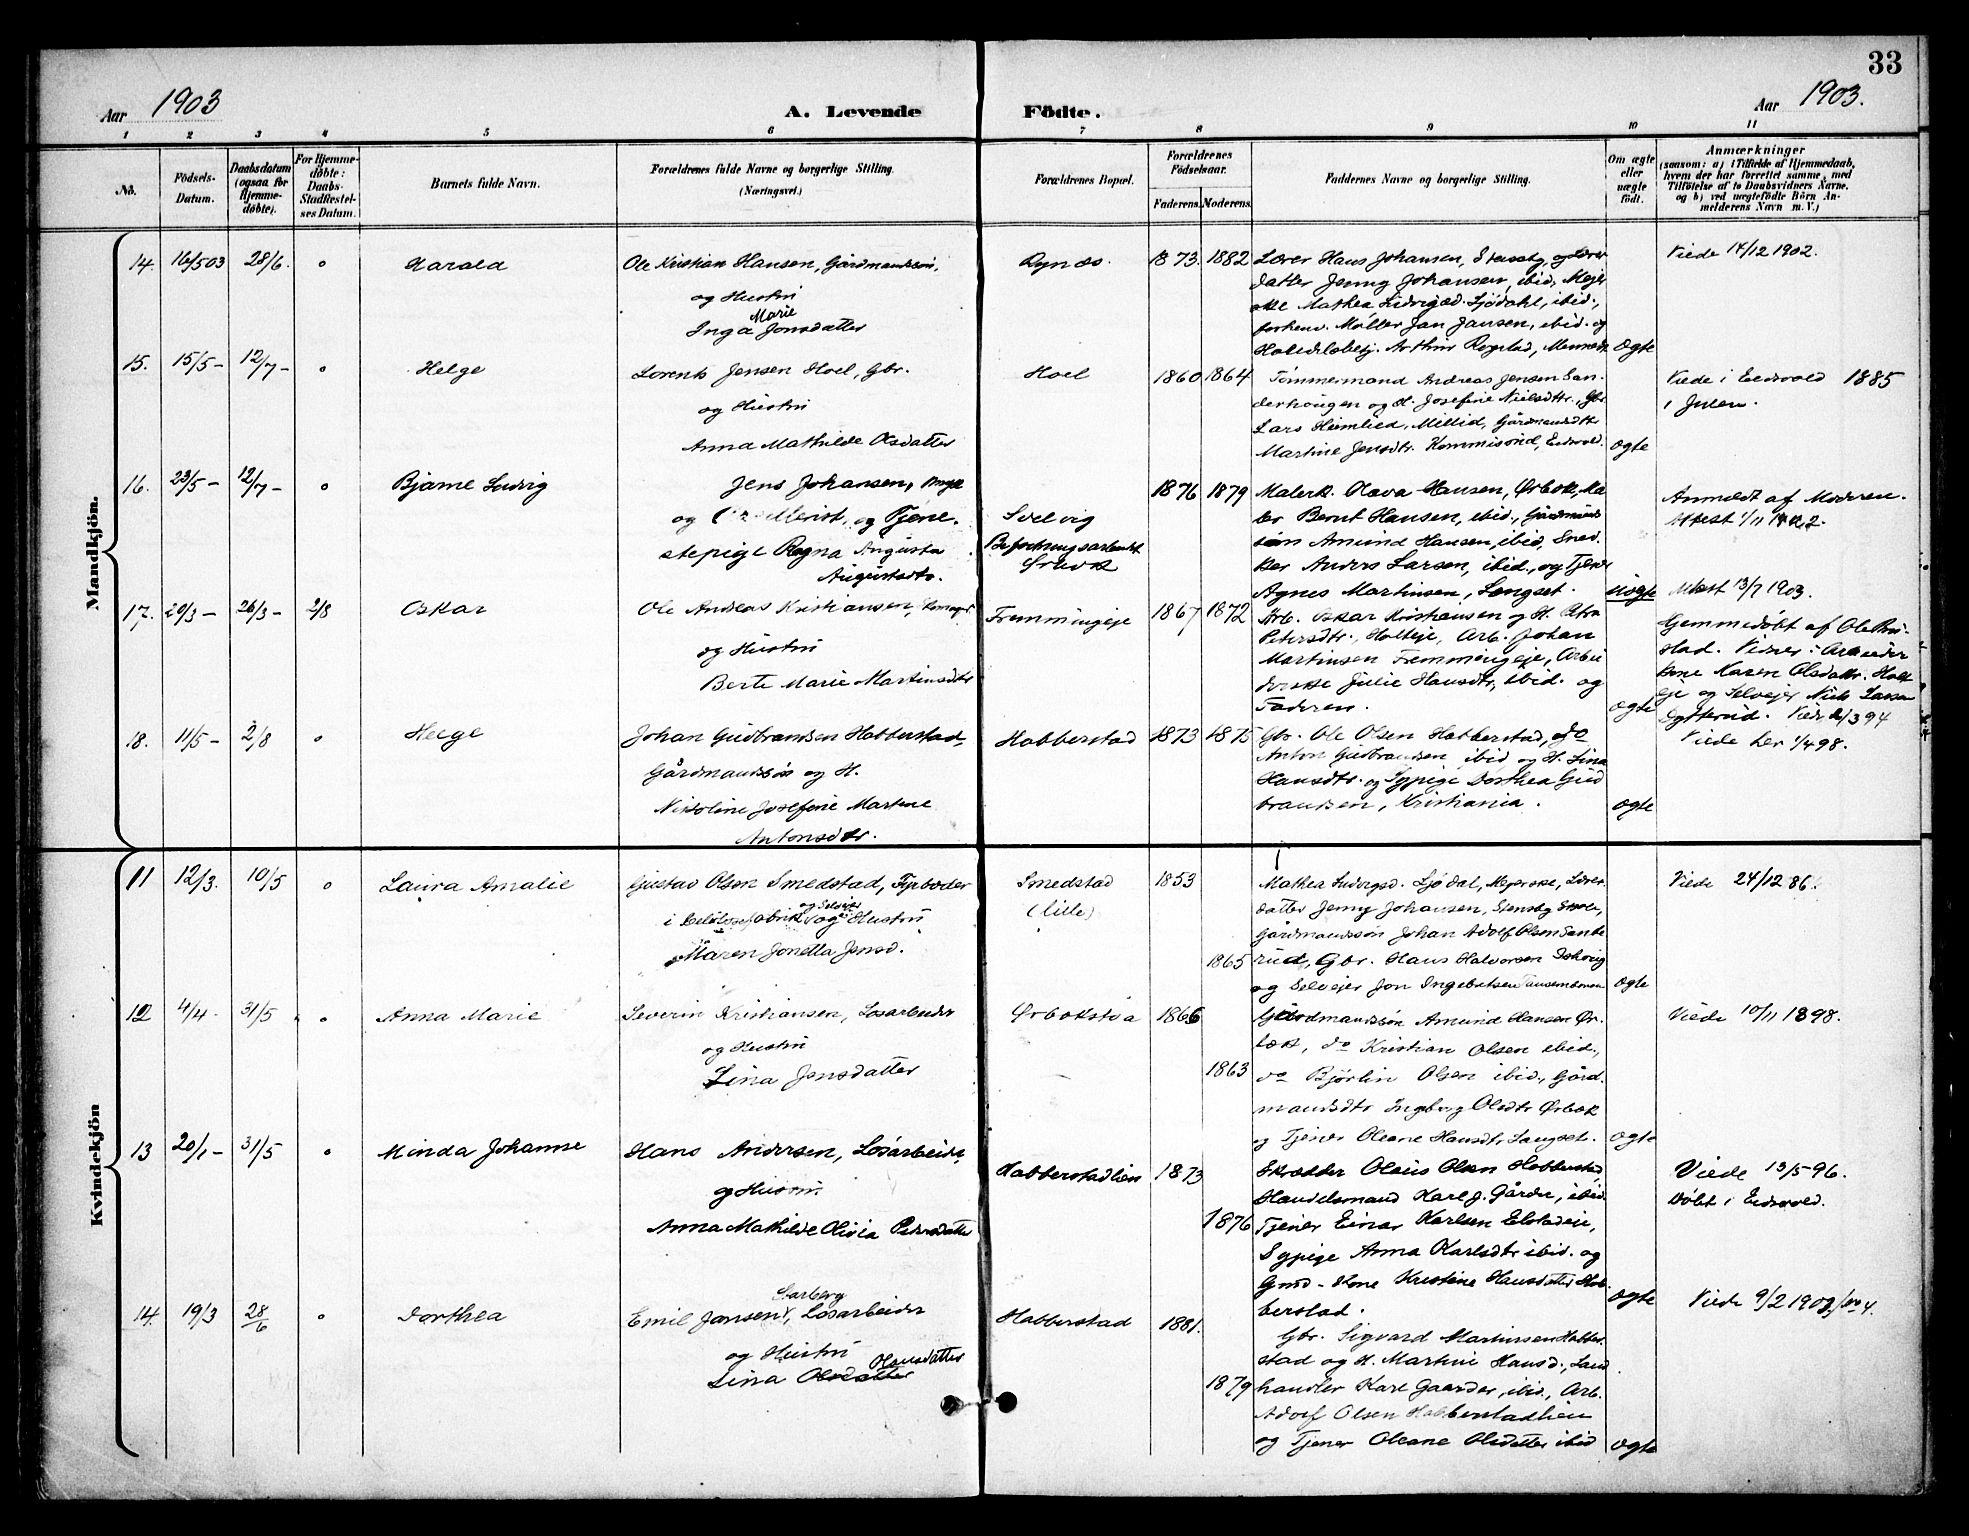 33
Aar 1903
A. Levende Födte.
Aar 1903.
1 2 3 4 5 6 7 8 9 10 11
No.
Födsels-Datum.
Daabsdatum (ogsaa for Hjemme-döbte).
For Hjemme-döbte: Daabs-Stadfæstel-ses Datum.
Barnets fulde Navn.
Forældrenes fulde Navne og borgerlige Stilling.
(Næringsvei.)
Forældrenes Bopæl.
Forældrenes Födselsaar.
Faderens. Moderens.
Faddernes Navne og borgerlige Stilling.
Om ægte eller uægte födt.
Anmærkninger
(saasom: a) i Tilfælde af Hjemmedaab,
hvem der har forrettet samme, med
Tilföielse af to Daabsvidners Navne,
og b) ved uægtefödte Börn An-
melderens Navn m. V.)
Mandkjön.
14. 16/5 03 28/6. o Harald
Ole Kristian Hansen, Gårdmandssön,
og Hustru
Marie
Inga Jonsdatter
1873. 1882
Lærer Hans Johansen, Stensby, og Lærer
datter Jenny Johansen, ibid, Mejer
ske Mathea Ludvigsd. Sjödahl, ibid.,
forhenv. Møller Jan Jansen, ibid. og
Arthur Rogstad,
Ægte
Viede 14/12 1902.
15. 15/5 - 12/7 - o Helge
Lorents Jensen Hoel, Gbr.
og Hustru
Anna Mathilde Olsdatter
Hoel
1860 1864
Tømmermand Andreas Jensen San-
derhougen og H. Josefine Nielsdtr., Gbr.
Lars Heimlied, Millid, Gårdmandsdtr.
Martine Jensdtr. Eidsvold.
Ægte
Viede i Eidsvold 1885
i Julen.
16. 23/5 - 12/7 - o Bjarne Ludvig
Jens Johansen, Ungk
og og Tjene-
stepige Ragna Augusta
Augustsdtr.
Solvig
Befæstningsarbeidet
Ørbæk
1876 1879
Malersk. Olava Hansen, Ørbæk, Ma-
ler Bernt Hansen, ibid, Gårdmands
sön Amund Hansen, ibid, Sned-
ker Anders Larsen, ibid., og Tjener
Agnes Martinsen, Langset.
Uægte
Anmeldt af Moderen.
Attest 13/7 1903.
17. 20/3 - 26/3 - 2/8 Oskar
Ole Andreas Kristiansen,
og Hustru
Berte Marie Martinsdtr
Fremmingeje
1867 1872
Arb. Oskar Kristiansen og H. Petra
Petersdtr., Holteje, Arb. Johan
Martinsen Fremmingeje, Arbei
derske Julie Hansdtr, ibid. og
Faderen.
Ægte
Hjemmedøbt af Ole
stad. Vidner: Arbeider
kone Karen Olsdatter. Holt
eje og Selvejer Niels Larsen
Viede 3 94
18. 11/5 - 2/8 o Helge
Johan Gudbrandsen Habberstad,
Gårdmandssön og H.
Nikoline Josefine Martine
Antonsdtr.
Habberstad
1873 1875
Gbr. Ole Olsen Habberstad, do
Anton Gudbrandsen ibid og H. Lina
Hansdtr. og Sypige Dorthea Gud
brandsen, Kristiania.
Ægte
Viede her 1/4 98.
Kvindekjön
11 12/3. 10/5 o Laura Amalie
Gustav Olsen Smedstad, Fyrbøder
og Selvejer
i Celulosefabrik og Hustru
Maren Jonetta Jensd.
Smedstad
(lille)
1853
1865
Mathea Ludvigsd. Sjödal, Mejerske, Lærer
datter Jenny Johansen, Stensby Skole,
Gårdmandssön Johan Adolf Olsen Sande
rud, Gbr. Hans Halvorsen
og Selvejer Jon Ingebretsen
Ægte
Viede 24/12 86.
12 4/4. 31/5 o Anna Marie
Severin Kristiansen, Løsarbeider
og Hustru
Lina Jensdatter
Ørbækstøa
1866
1863
Gårdmandssön Amund Hansen Ør-
bæk, do Kristian Olsen ibid.,
do Bjørlin Olsen ibid., Gård-
mandsdtr Ingeborg Olsdtr Ørbæk
og Tjener Oleane Hansdtr Langset.
Ægte
Viede 10/11 1898.
13 20/1 - 31/5 o Minda Johanne
Hans Andersen, Løsarbeider,
og Hustru
Anna Mathilde Olivia Pedersdatter
Habberstadlien
1873
1876
Skrædder Olaus Olsen Habberstad,
Handelsmand Karl J. Gårder, ibid.
Tjener Einar Karlsen Elstadeie,
Sypige Anna Karlsdtr ibid. og
Grmd.-Kone Kristine Hansdatter Hab-
berstad.
Ægte
Viede 13/5 96.
Døbt i Eidsvold.
14. 19/3 28/6 o Dorthea
Emil Jansen, Løsarbeider
og Hustru
Hansdatter
Lina Olsdatter
Habberstad
1881.
1879
Gbr. Sigvard Martinsen Habber
stad og H. Martine Hansd., Land
handler Karl Gaarder, ibid., Arb.
Adolf Olsen Habberstadlien
og Tjener Oleane Olsdatter ibid
Ægte
Viede 9/2 1903, No 4.